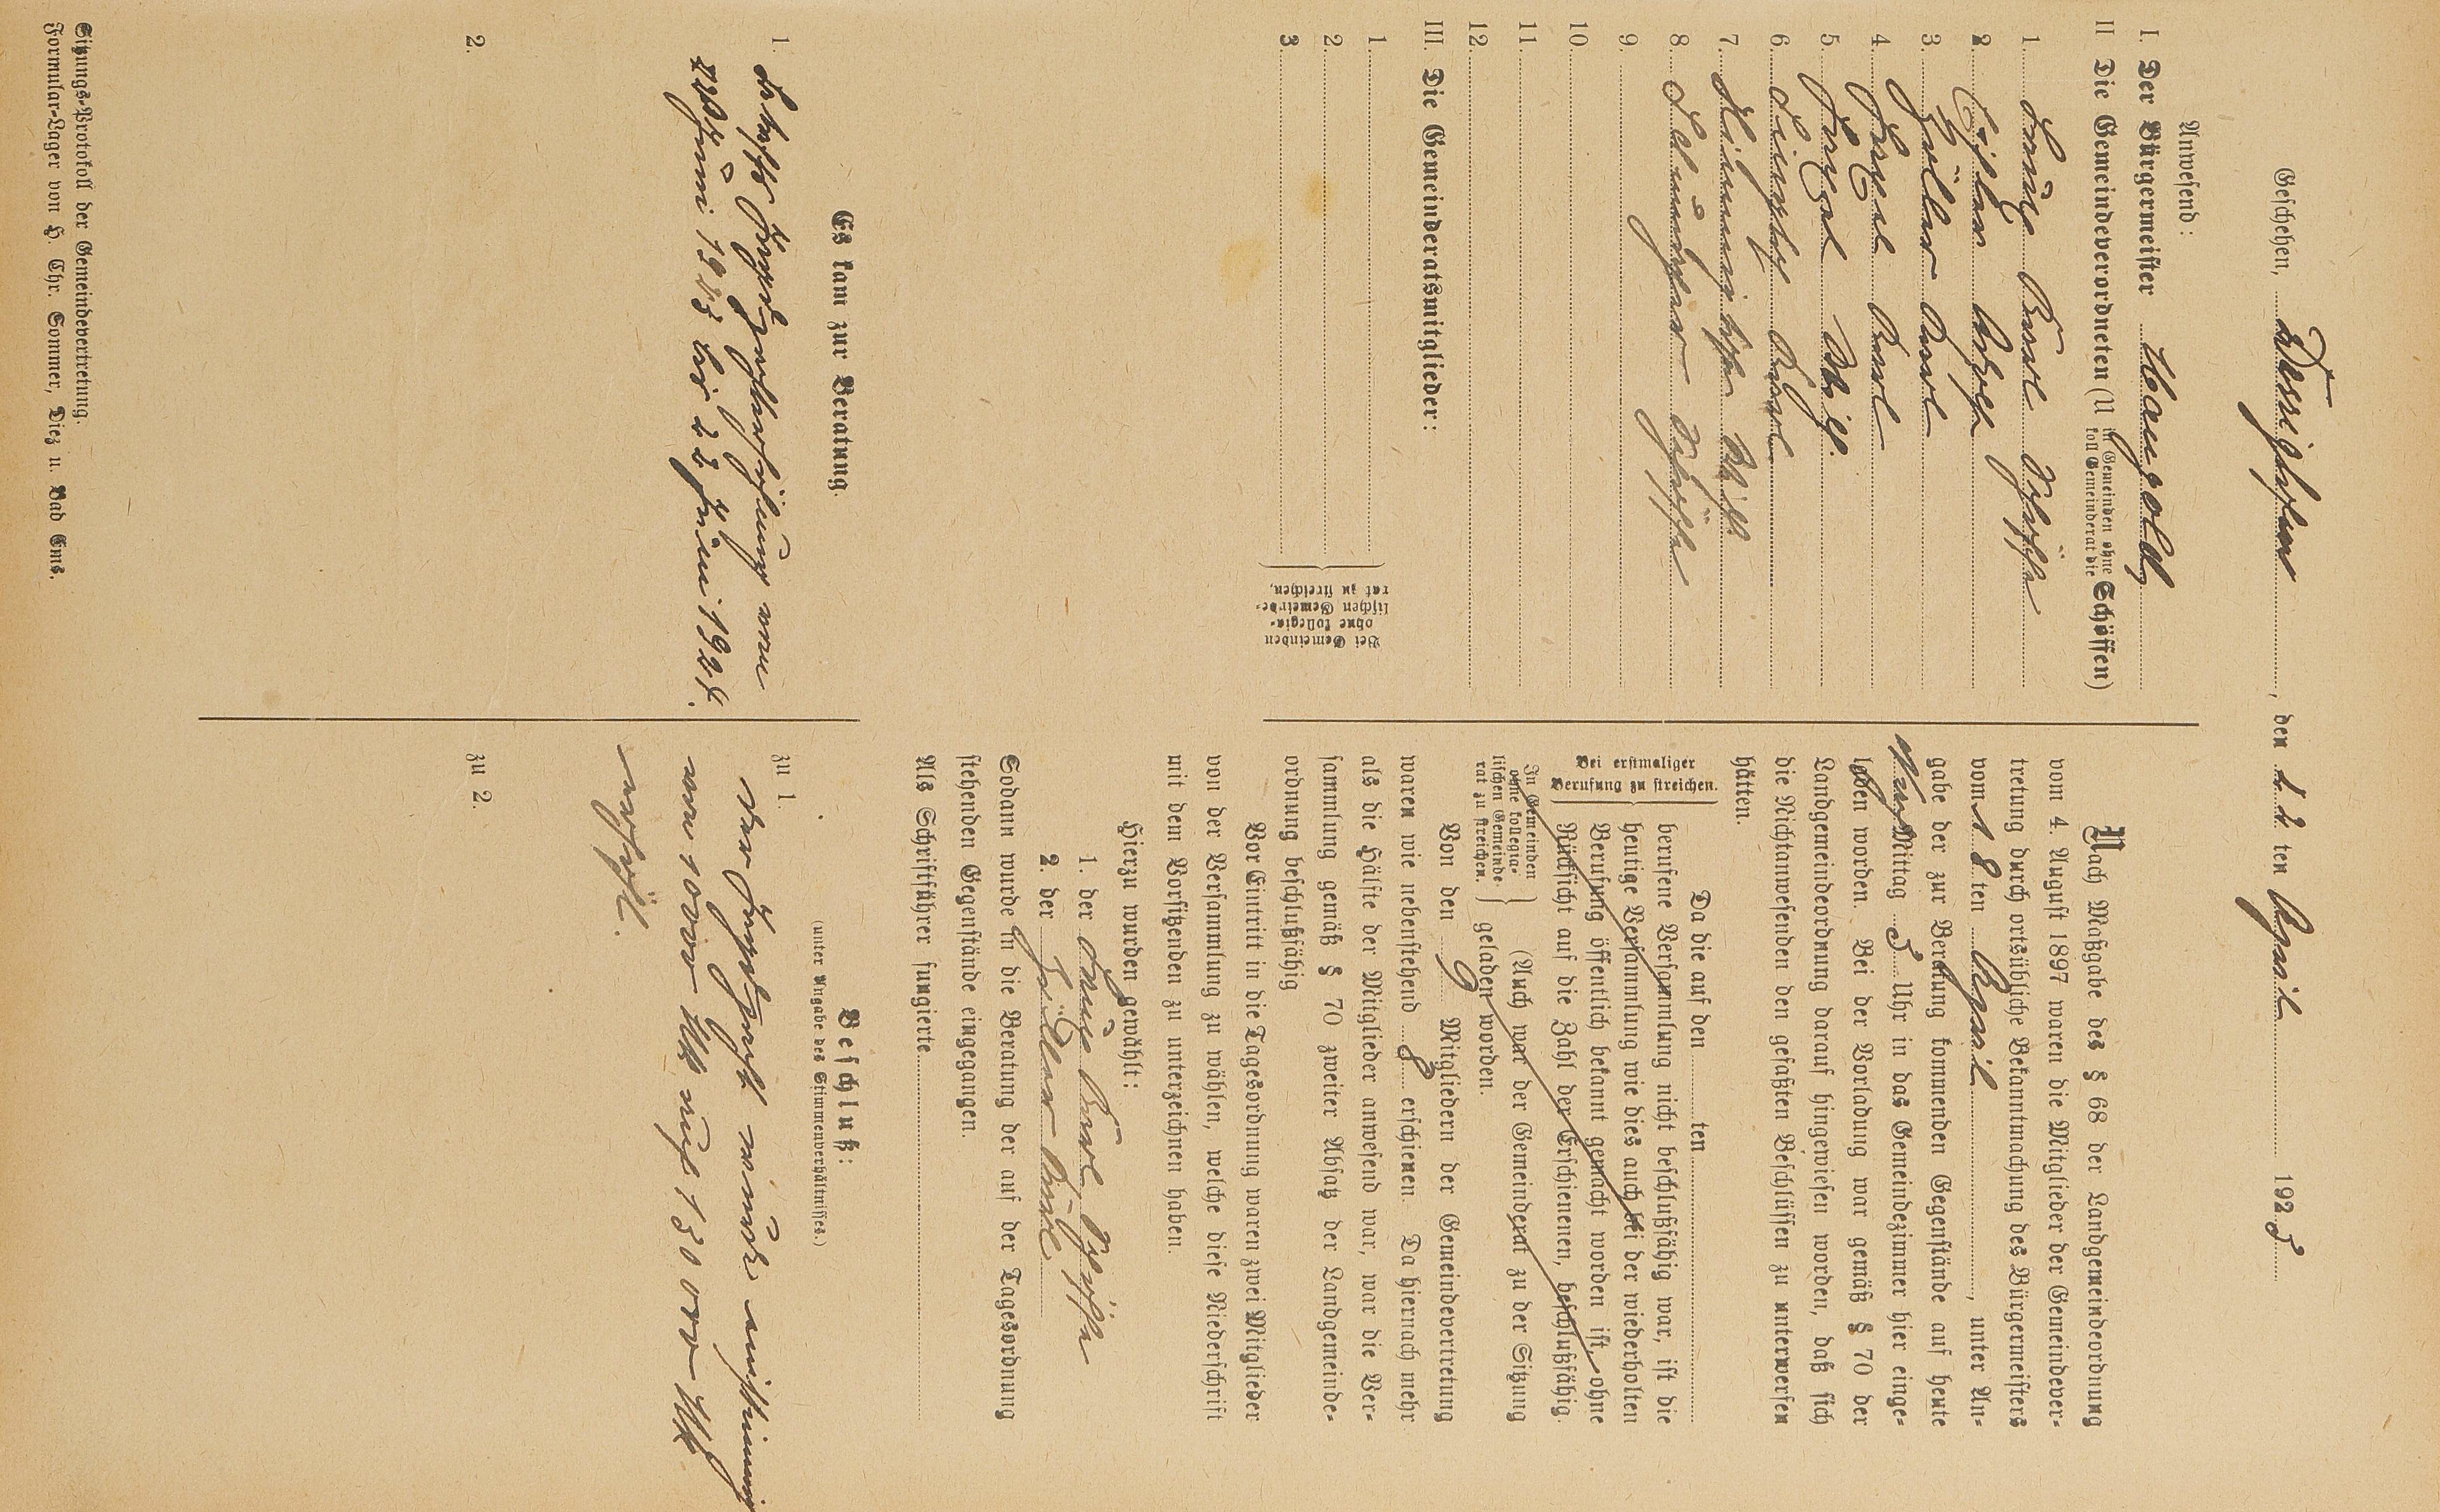 Geschehen, Dörsdorf, den 22 ten April 1923
Anwesend:
I. Der Bürgermeister Mangold
II Die Gemeindeverordneten (U in Gemeinden ohne koll Gemeinderat die Schöffen)
1. Karl Schöffe
2.
3. Zöller Karl
4. Karl
5. Wilh.
6. Karl
7. Wilh.
8. Schöffe
9.
10.
11.
12.
III. Die Gemeinderatsmitglieder:
1.
2.
3.
Bei Gemeinden
ohne kollegia-
lischen Gemeinde-
rat zu streichen,
Nach Maßgabe des § 68 der Landgemeindeordnung
vom 4. August 1897 waren die Mitglieder der Gemeindever-
tretung durch ortsübliche Bekanntmachung des Bürgermeisters
vom 18 ten April, unter An-
gabe der zur Beratung kommenden Gegenstände auf heute
Nach Mittag 3 Uhr in das Gemeindezimmer hier einge-
laden worden. Bei der Vorladung war gemäß § 70 der
Landgemeindeordnung darauf hingewiesen worden, daß sich
die Nichtanwesenden den gefaßten Beschlüssen zu unterwerfen
hätten.
Bei erstmaliger
Berufung zu streichen.
Da die auf den ten
berufene Versammlung nicht beschlußfähig war, ist die
heutige Versammlung wie dies auch bei der wiederholten
Berufung öffentlich bekannt gemacht worden ist, ohne
Rücksicht auf die Zahl der Erschienenen, beschlußfähig.
In Gemeinden
ohne kollegia-
lischen Gemeinde-
rat zu streichen.
(Auch war der Gemeinderat zu der Sitzung
geladen worden.
Von den 9 Mitgliedern der Gemeindevertretung
waren wie nebenstehend 8 erschienen. Da hiernach mehr
als die Hälfte der Mitglieder anwesend war, war die Ver-
sammlung gemäß § 70 zweiter Absatz der Landgemeinde-
ordnung beschlußfähig
Vor Eintritt in die Tagesordnung waren zwei Mitglieder
von der Versammlung zu wählen, welche diese Niederschrift
mit dem Vorsitzenden zu unterzeichnen haben.
Hierzu wurden gewählt:
1. der Karl, Schöffe
2. der Zöller Karl
Sodann wurde in die Beratung der auf der Tagesordnung
stehenden Gegenstände eingegangen.
Als Schriftführer fungierte
Es kam zur Beratung.
1. Betrifft Jagdpachterhöhung vom
22 Juni 1923 bis 22 Juni 1924.
2.
Beschluß:
(unter Angabe des Stimmenverhältnisses.)
zu 1.
Die Jagdpacht wurde einstimmig
von 10000 Mk auf 130000 Mk
erhöht.
zu 2.
Sitzungs-Protokoll der Gemeindevertretung.
Formular-Lager von H. Chr. Sommer, Diez u. Bad Ems.